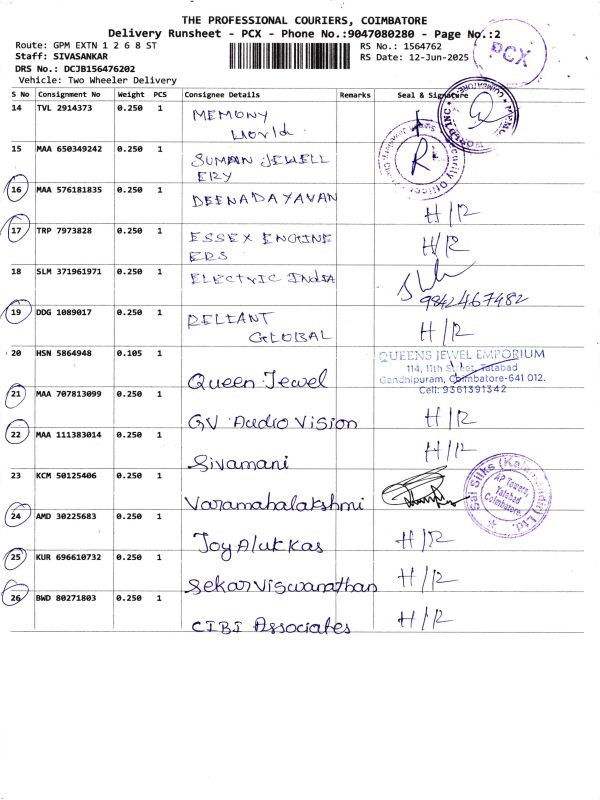 THE PROFESSIONAL COURIERS, COIMBATORE
Delivery Runsheet - PCX - Phone No.:9047080280 - Page No.:2
Route: GPM EXTN 1 2 6 8 ST
Staff: SIVASANKAR
DRS No.: DCJB156476202
Vehicle: Two Wheeler Delivery
RS No.: 1564762
RS Date: 12-Jun-2025
PCX
S No Consignment No Weight PCS Consignee Details Remarks Seal & Signature
14 TVL 2914373 0.250 1 MEMONY
World
15 MAA 650349242 0.250 1 SUMAN JEWELL
ERY
Security Officer
16 MAA 576181835 0.250 1 DEENADAYAVAN H/R
17 TRP 7973828 0.250 1 ESSEX ENGINE H/R
ERS
18 SLM 371961971 0.250 1 ELECTRIC INDIA
9842467482
19 DDG 1089017 0.250 1 RELIANT H/R
GLOBAL
20 HSN 5864948 0.105 1 Queen Jewel
QUEENS JEWEL EMPORIUM
114, 11th Street, Tatabad
Gandhipuram, Coimbatore-641 012.
Cell: 9361391342
21 MAA 707813099 0.250 1 GV Audio Vision H/R
22 MAA 111383014 0.250 1 Sivamani H/R
23 KCM 50125406 0.250 1 Varamahalakshmi
Sai Silks (Kalamandir) Ltd
AP Towers,
Tatabad
Coimbatore.
24 AMD 30225683 0.250 1 Joy Alukkas H/R
25 KUR 696610732 0.250 1 Sekar Viswanathan H/R
26 BWD 80271803 0.250 1 CIBI Associates H/R